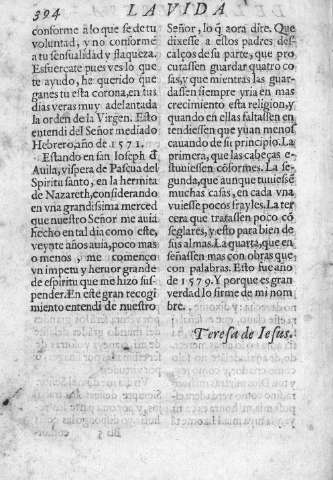 394 LA VIDA
conforme a lo que se de tu
voluntad, y no conforme
a tu sensualidad y flaqueza.
Esfuerçate pues ves lo que
te ayudo, he querido que
ganes tu esta corona, en tus
dias veras muy adelantada
la orden de la Virgen. Esto
entendi del Señor mediado
Hebrero, año de 1571.
Estando en san Ioseph đ
Auila, vispera de Pascua del
Spiritu santo, en la hermita
de Nazareth, considerando
en vna grandissima merced
que nuestro Señor me auia
hecho en tal dia como este,
veynte años auia, poco mas
o menos, me començo
vn impetu y heruor grande
de espiritu que me hizo sus-
pender. En este gran recogi
miento entendi de nuestro
Señor, lo q̃ aora dire. Que
dixesse a estos padres des-
calços de su parte, que pro
curassen guardar quatro co
sas, y que mientras las guar-
dassen siempre yria en mas
crecimiento esta religion, y
quando en ellas faltassen en
tendiessen que yuan menos
cauando de su principio. La
primera, que las cabeças e-
stuuiessen cõformes. La se-
gunda, que aunque tuuiessẽ
muchas casas, en cada vna
vuiesse pocos frayles. La ter
cera que tratassen poco cõ
seglares, y esto para bien de
sus almas. La quarta, que en
señassen mas con obras que
con palabras. Esto fue año
de 1579. Y porque es gran
verdad lo firme de mi nom
bre.
Teresa de Iesus.